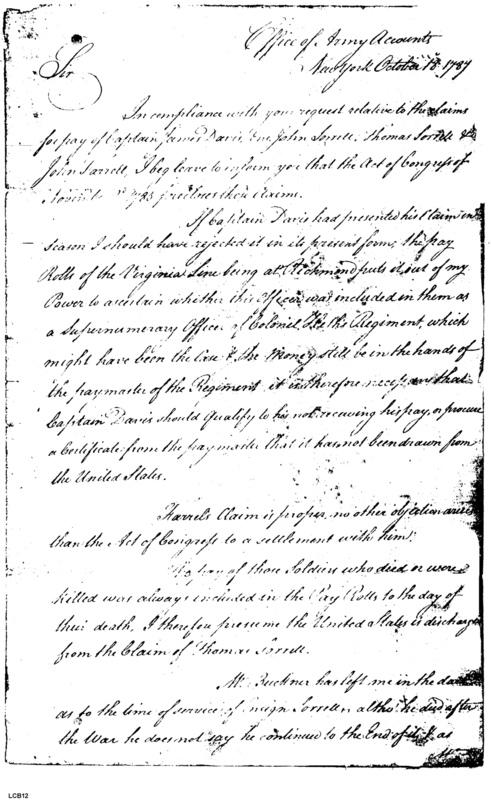 Office of Army Accounts
New York October 15th 1787
Sir
In compliance with your request relative to the Claims
for pay of Captain James Davis, John Sorrell, Thomas Sorrell &
John Farrell, I beg leave to inform you that the Act of Congress of
Novemb 1785 precludes their Claims.
If Captain Davis had presented his Claim in
season I should have rejected it in its present form, the pay
Rolls of the Virginia Line being at Richmond puts it out of my
Power to ascertain whether this Officer was included in them as
a Supernumerary Officer of Colonel Regiment, which
might have been the Case & the Money still be in the hands of
the paymaster of the Regiment it is therefore necessary that
Captain Davis should Qualify to his not receiving his pay, or procure
a Certificate from the paymaster that it has not been drawn from
the United States.
Farrel's Claim is proper, no other objection arises
than the Act of Congress to a settlement with him.
The pay of those Soldiers who died or were
killed was always included in the Pay Rolls to the day of
their death, I therefore presume the United States is discharged
from the Claim of Thomas Sorrell.
Mr. Buckner has left me in the dark
as to the time of service of Ensign Sorrell altho' he died after
the War he does not say he continued to the End of it, & as
LCB12